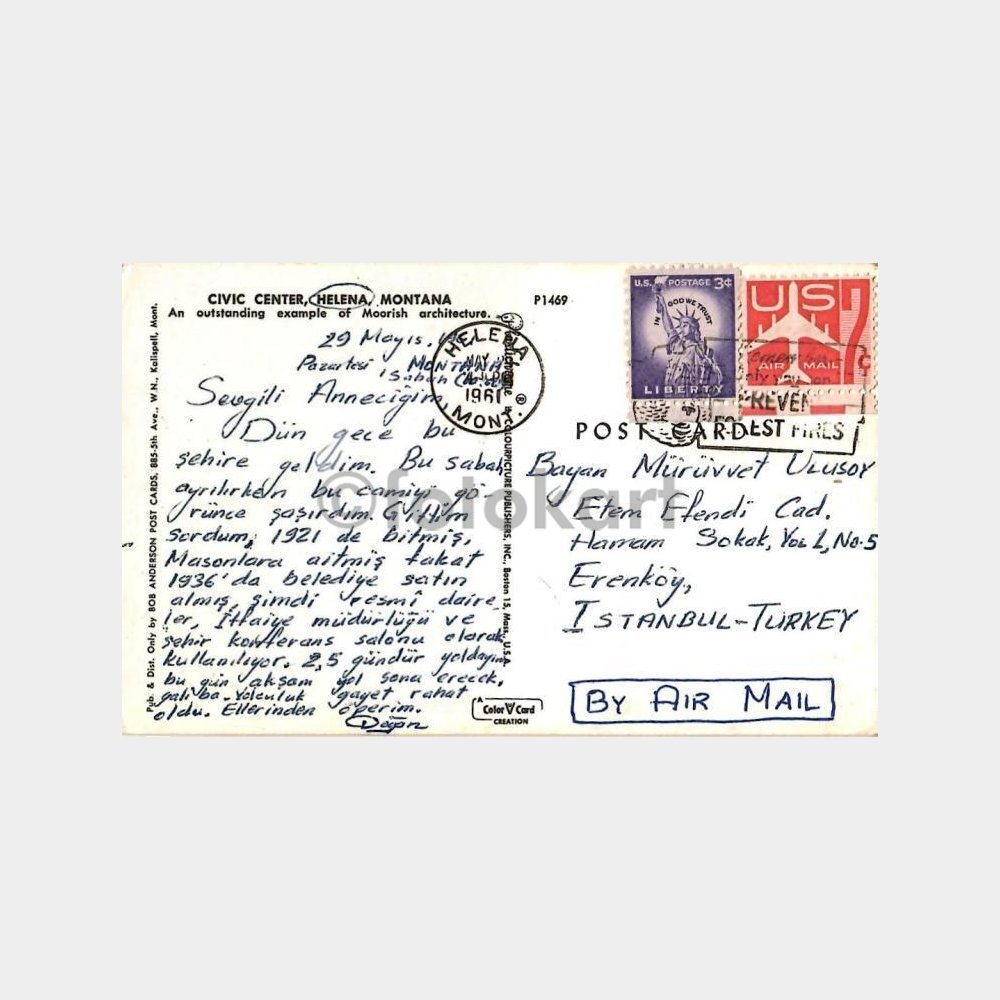 CIVIC CENTER, HELENA, MONTANA
An outstanding example of Moorish architecture.
P1469
29 Mayıs.
Pazartesi MONTANA
Sabah
Sevgili Anneciğim,
Dün gece bu
şehire geldim. Bu sabah
ayrılırken bu camiyi gö-
rünce şaşırdım. Gittim
sordum, 1921 de bitmiş,
Masonlara aitmiş fakat
1936'da belediye satın
almış, şimdi resmî daire
ler, İtfaiye müdürlüğü ve
şehir konferans salonu olarak
kullanılıyor. 2,5 gündür yoldayım
bu gün akşam yol sona erecek,
galiba. Yolculuk gayet rahat
oldu. Ellerinden öperim.
Doğan
Pub. & Dist. Only by BOB ANDERSON POST CARDS, 885-5th Ave., W.N., Kalispell, Mont.
COLOURPICTURE PUBLISHERS, INC., Boston 15, Mass., U.S.A.
HELENA
MAY
1961
MONT.
U.S. POSTAGE 3¢
IN GOD WE TRUST
LIBERTY
US 7¢
AIR MAIL
PREVENT
FOREST FIRES
POST CARD
Bayan Mürüvvet ULUSOY
Etem Efendi Cad.
Hamam Sokak, Yol 1, No. 5
Erenköy,
ISTANBUL-TURKEY
BY AIR MAIL
A Color Card
CREATION
©fotokart